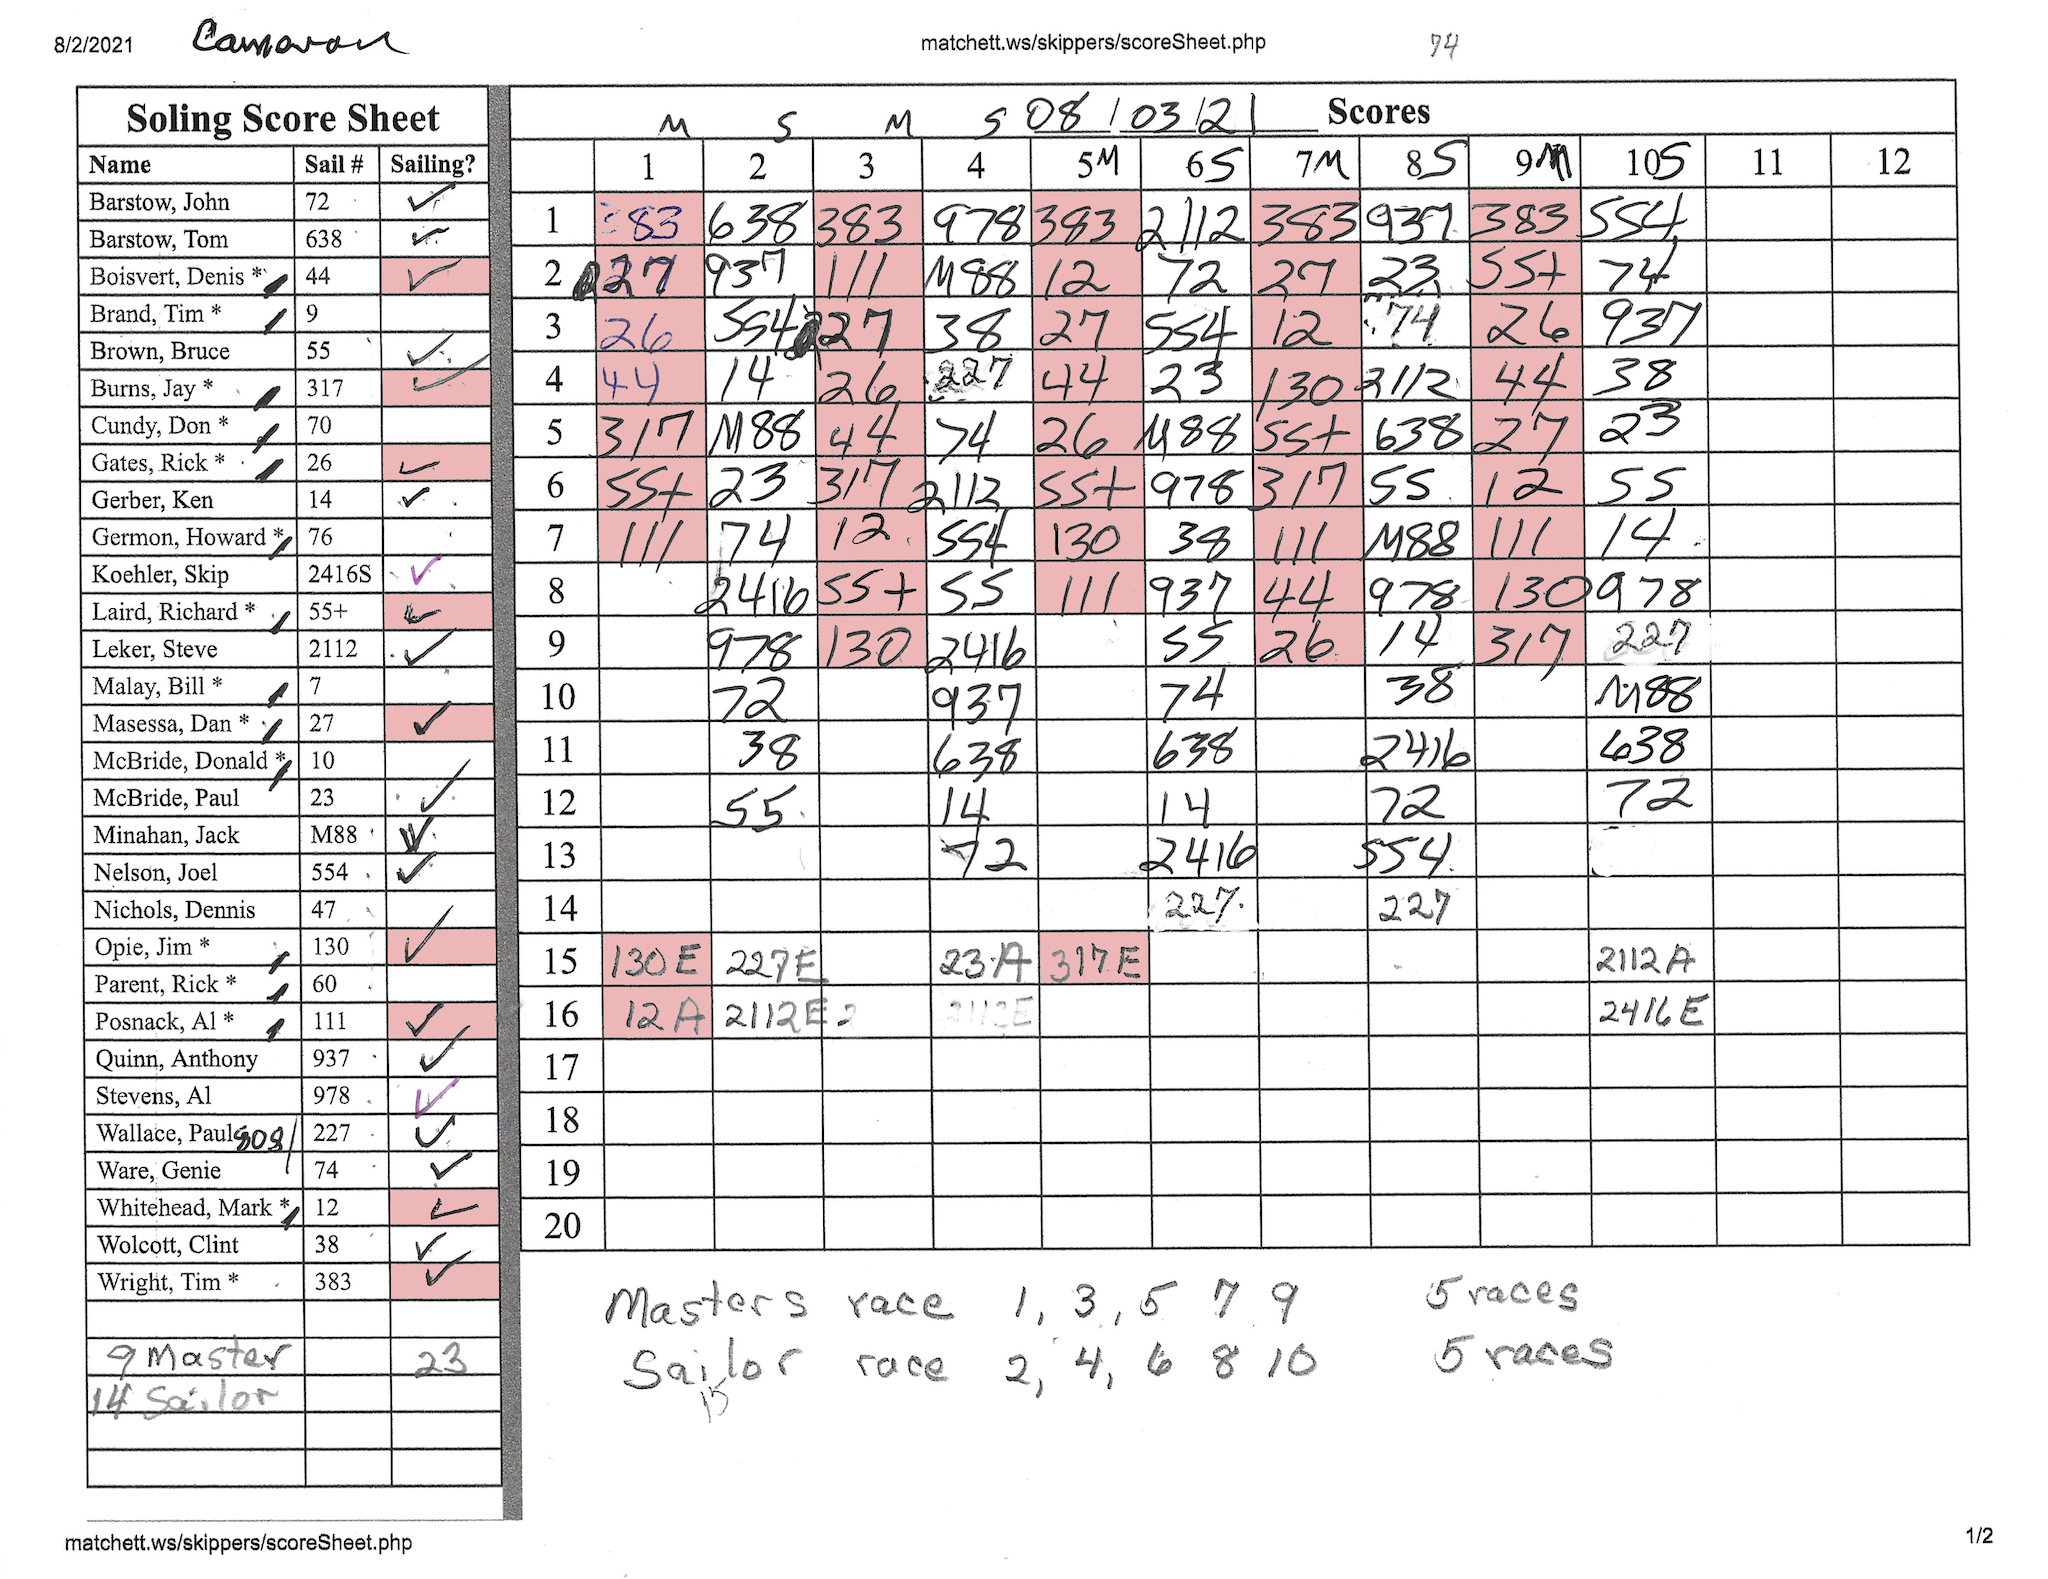 8/2/2021 Camaron matchett.ws/skippers/scoreSheet.php 74
Soling Score Sheet
Name Sail # Sailing?
Barstow, John 72 ✓
Barstow, Tom 638 ✓
Boisvert, Denis * 44 ✓
Brand, Tim * 9
Brown, Bruce 55 ✓
Burns, Jay * 317 ✓
Cundy, Don * 70
Gates, Rick * 26 ✓
Gerber, Ken 14 ✓
Germon, Howard * 76
Koehler, Skip 2416S ✓
Laird, Richard * 55+ ✓
Leker, Steve 2112 ✓
Malay, Bill * 7
Masessa, Dan * 27 ✓
McBride, Donald * 10
McBride, Paul 23 ✓
Minahan, Jack M88 ✓
Nelson, Joel 554 ✓
Nichols, Dennis 47
Opie, Jim * 130 ✓
Parent, Rick * 60
Posnack, Al * 111 ✓
Quinn, Anthony 937 ✓
Stevens, Al 978 ✓
Wallace, Paul 808/ 227 ✓
Ware, Genie 74 ✓
Whitehead, Mark * 12 ✓
Wolcott, Clint 38 ✓
Wright, Tim * 383 ✓
9 Master 23
14 Sailor
M S M S 08/03/21 Scores
1 2 3 4 5M 6S 7M 8S 9M 10S 11 12
1 383 638 383 978 383 2112 383 937 383 554
2 27 937 111 M88 12 72 27 23 55+ 74
3 26 554 27 38 27 554 12 74 26 937
4 44 14 26 227 44 23 130 2112 44 38
5 317 M88 44 74 26 M88 55+ 638 27 23
6 55+ 23 317 2112 55+ 978 317 55 12 55
7 111 74 12 554 130 38 111 M88 111 14
8 2416 55+ 55 111 937 44 978 130 978
9 978 130 2416 55 26 14 317 227
10 72 937 74 38 M88
11 38 638 638 2416 638
12 55 14 14 72 72
13 72 2416 554
14 227 227
15 130 E 227 E 23 A 317 E 2112 A
16 12 A 2112 E 2 2112 E 2416 E
17
18
19
20
Masters race 1, 3, 5 7 9 5 races
Sailor race 2, 4, 6 8 10 5 races
15
matchett.ws/skippers/scoreSheet.php 1/2